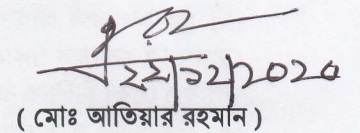 ২২|১২|২০২০
( মোঃ আতিয়ার রহমান )